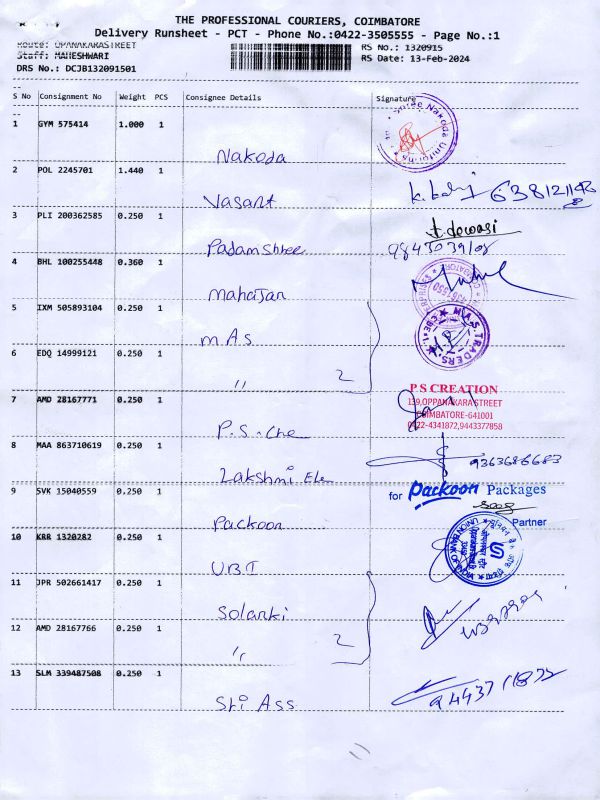 THE PROFESSIONAL COURIERS, COIMBATORE
Delivery Runsheet - PCT - Phone No.:0422-3505555 - Page No.:1
Route: OPANAKARASTREET
Staff: MAHESHWARI
DRS No.: DCJB132091501
RS No.: 1320915
RS Date: 13-Feb-2024
S No Consignment No Weight PCS Consignee Details Signature
1 GYM 575414 1.000 1
Nakoda
Shree Nakoda Uniforms
2 POL 2245701 1.440 1
Vasant
3 PLI 200362585 0.250 1
Padamshree
t. dewasi
4 BHL 100255448 0.360 1
Mahajan
5 IXM 505893104 0.250 1
M.A.S
M.A.S. TRADERS
CBE-1.
6 EDQ 14999121 0.250 1
" 2
7 AMD 28167771 0.250 1
P.S. Cre
P S CREATION
139,OPPANAKARA STREET
COIMBATORE-641001
0422-4341872,9443377858
8 MAA 863710619 0.250 1
Lakshmi Ele
9363686683
9 SVK 15040559 0.250 1
Packoon
for Packoon Packages
Partner
10 KRR 1320282 0.250 1
UBI
UNION BANK OF
11 JPR 502661417 0.250 1
Solanki
12 AMD 28167766 0.250 1
" 2
13 SLM 339487508 0.250 1
Sri Ass